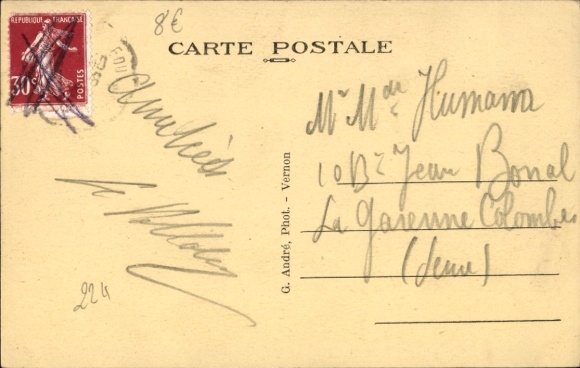 8€
RÉPUBLIQUE FRANÇAISE
30c
POSTES
CARTE POSTALE
Amitiés
G. André, Phot. - Vernon
Mr Mde Humann
10 Bd Jean Bonal
La Garenne Colombes
(Seine)
224